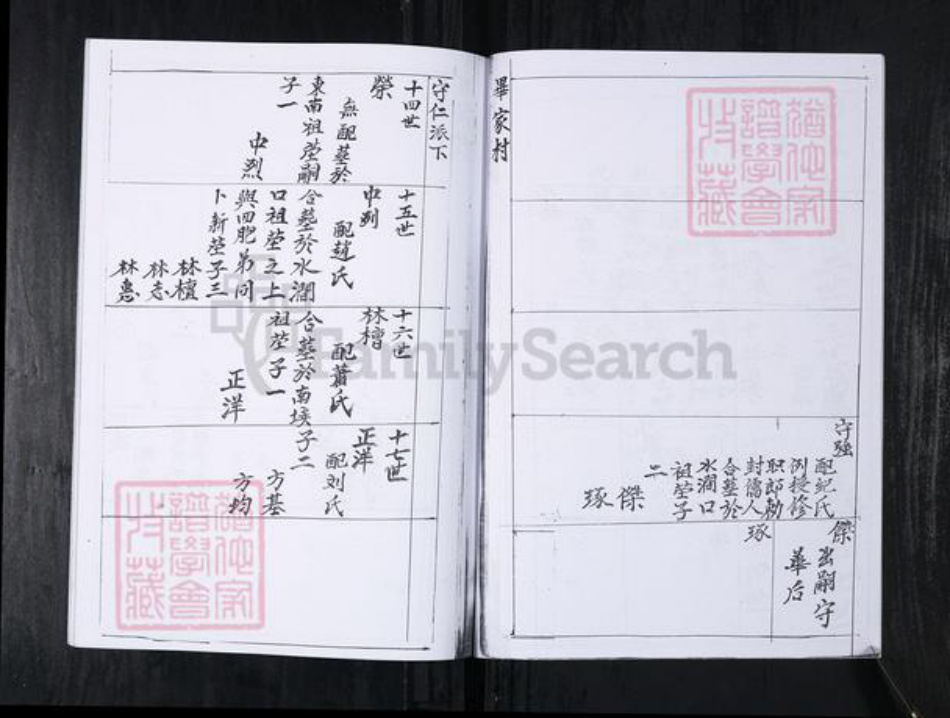 守強
配紀氏
例授修
职郎勅
封儒人
合墓於
水澗口
祖塋子
二
傑
琢
傑
出嗣守
華后
琢
畢家村
守仁派下
十四世
榮
無配墓於
東南祖塋嗣
子一
中烈
十五世
中烈
配趙氏
合墓於水澗
口祖塋之上
與四肥弟同
卜新塋子三
林檀
林志
林惠
十六世
林檀
配蕭氏
合墓於南埃
祖塋子一
正洋
十七世
正洋
配刘氏
子二
方基
方均
猶他家
譜學會
收藏
猶他家
譜學會
收藏
FamilySearch